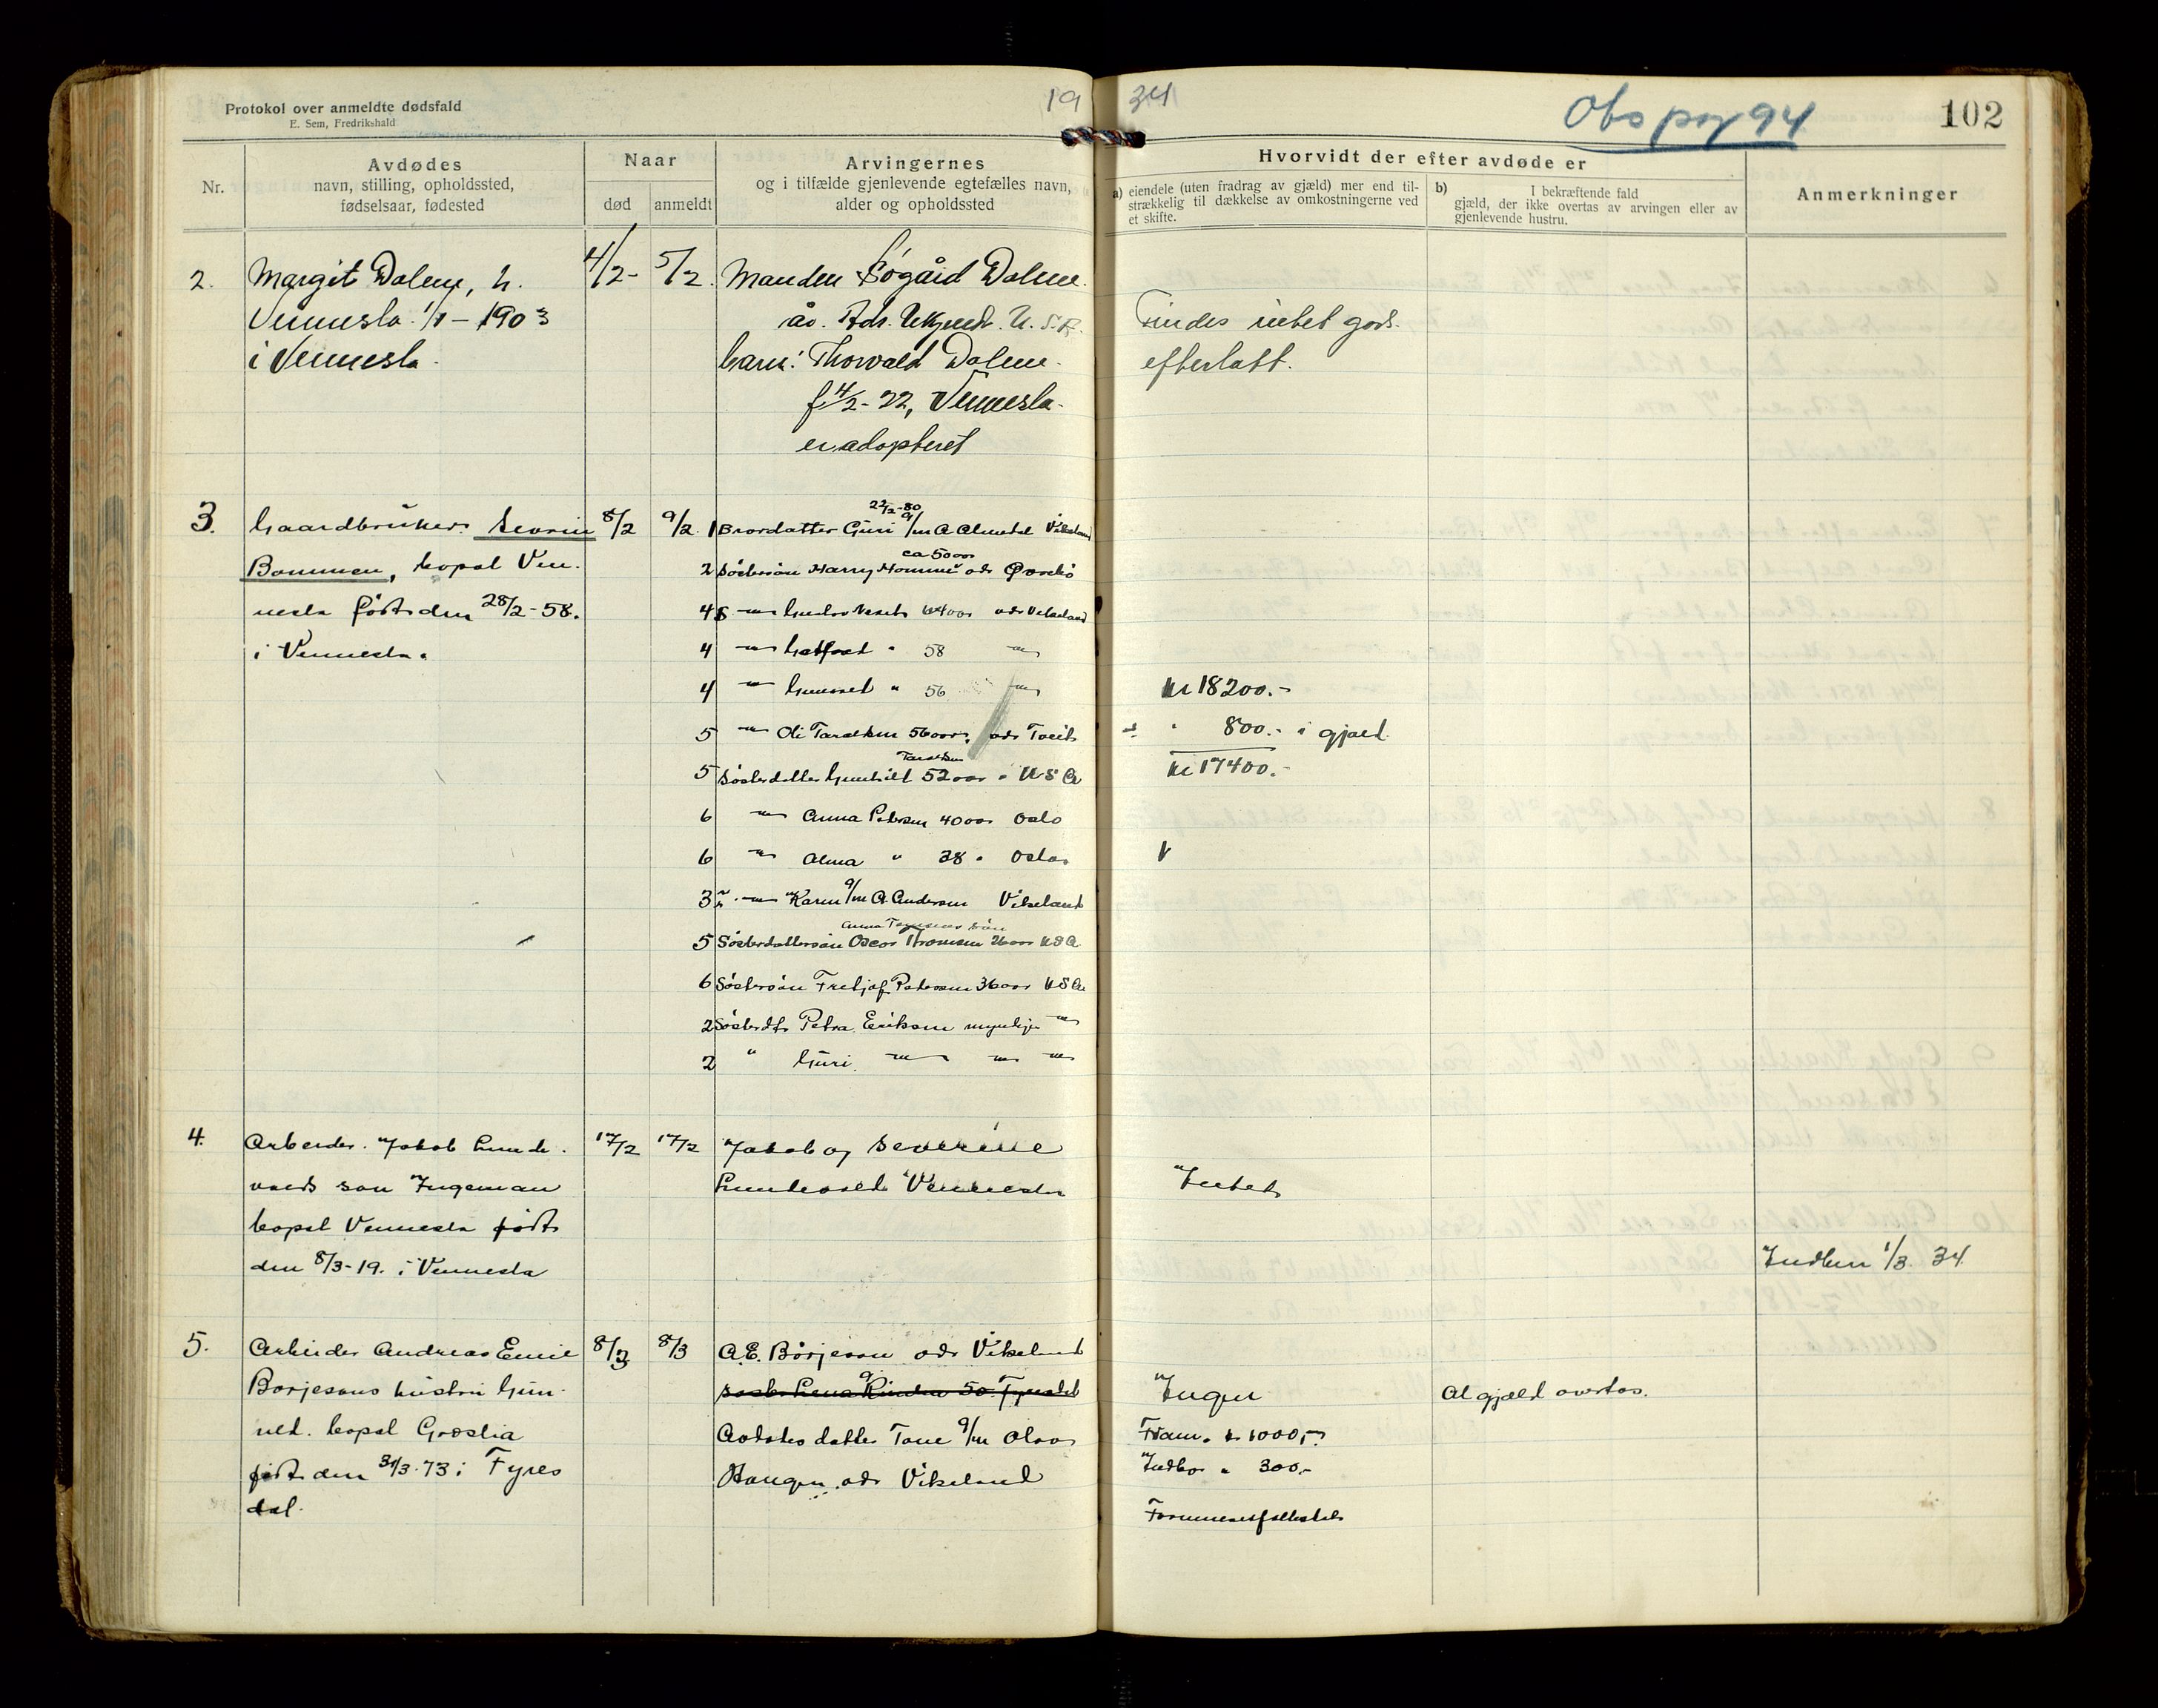 Protokol over anmeldte dødsfald
E. Sem, Fredrikshald
19 34
Obs pag 94
102
Nr.
Avdødes
navn, stilling, opholdssted,
fødselsaar, fødested
Naar
død
anmeldt
Arvingernes
og i tilfælde gjenlevende egtefælles navn,
alder og opholdssted
Hvorvidt der efter avdøde er
a) eiendele (uten fradrag av gjæld) mer end til-
strækkelig til dækkelse av omkostningerne ved
et skifte.
b) I bekræftende fald
gjæld, der ikke overtas av arvingen eller av
gjenlevende hustru.
Anmerkninger
2.
Margit Dalene, h.
Vennesla 1/1 - 1903
i Vennesla.
4/2 -
5/2.
Manden Dalene.
Ads. Ukjendt. U.S.A.
barn: Thorvald Dalene.
f 4/2 - 22, Vennesla.
er adopteret
Findes intet gods.
efterlatt.
3.
Gaardbruker Severin
Bommen, bopæl Ven-
nesla født den 28/2 - 58.
i Vennesla.
8/2
9/2.
22/2 - 80
1 Brordatter Guri g/m A Almedal Vikeland
ca 50 aar
2 Søstersøn Harry Homme adr Øvrebø
4 S -"- 64 aar adr Vikeland
4 -"- " 58 -"-
4 -"- Gunvald " 56 -"-
5 -"- Oli Taraldsen 56 aar, adr Tveit
Taraldsen
5 Søsterdatter Gunhild 52 aar " U S A
6 -"- Anna Petersen 40 aar Oslo
6 -"- Alma " 38 " Oslo
3 -"- Karen g/m A. Andersen Vikeland
Anna søn
5 Søsterdattersøn Oscar Thomsen 26 aar U S A
6 Søstersøn Fritjof Petersen 36 aar U S A
2 Søsterdtr Petra Eriksen myndige -"-
2 " Guri -"- -"- -"-
Kr 18200.-
÷ " 800.- i gjæld
Kr 17400.-
4.
Arbeider Jakob Lunde-
volds søn Ingeman
bopæl Vennesla født
den 8/3 - 19. i Vennesla
17/2
17/2
Jakob og Severine
Lundevold Vennesla
Intet
Indber 1/3. 34.
5.
Arbeider Andreas Emil
Børjesons hustru Gun-
ild. bopæl Graslia
født den 31/3. 73 i Fyres
dal.
8/3
8/3
A.E. Børjeson adr Vikeland
søster Lena 50. Fyresdal
Adoptivdatter Tone g/m Olav
Haugen adr Vikeland
Ingen
Fram. kr 1000,-
Indbo " 300.-
Formuesfællesskab
Al gjæld overtas.